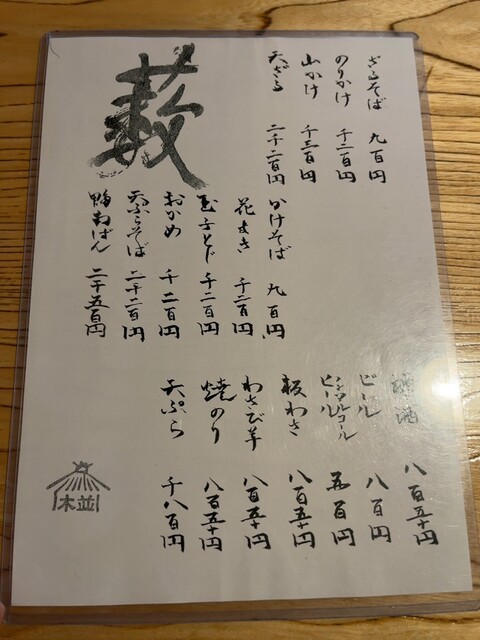 藪
ざるそば 九百円
のりかけ 千二百円
山かけ 千三百円
天ざる 二千二百円
かけそば 九百円
花まき 千二百円
玉子とじ 千二百円
おかめ 千二百円
天ぷらそば 二千二百円
鴨なんばん 二千五百円
八百五十円
ビール 八百円
ノンアルコールビール 五百円
板わさ 八百五十円
わさび芋 八百五十円
焼のり 八百五十円
天ぷら 千八百円
並木